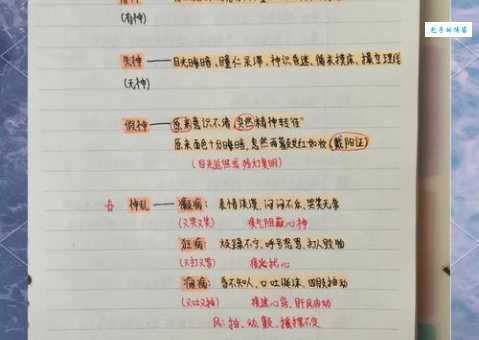 (有神)
失神——目光晦暗、瞳仁呆滞、神识昏迷、循衣摸床、撮空理线
(无神)
假神——原来意识不清,突然精神转"佳"
原来面色十分晦暗,忽然两颧发红如妆(戴阳证)
(回光返照或残灯复明)
☆ 神乱——癫病:表情淡漠、闷闷不乐、哭笑无常
(又哭又笑) 痰气阻蔽心神
狂病:狂躁不宁、呼号怒骂、打人毁物
(又打又骂) 痰火扰心
痫病:昏不知人、口吐涎沫、四肢抽动
(又吐又抽) 痰迷心窍、肝风内动
风:抽、动、颤、摇摆不定